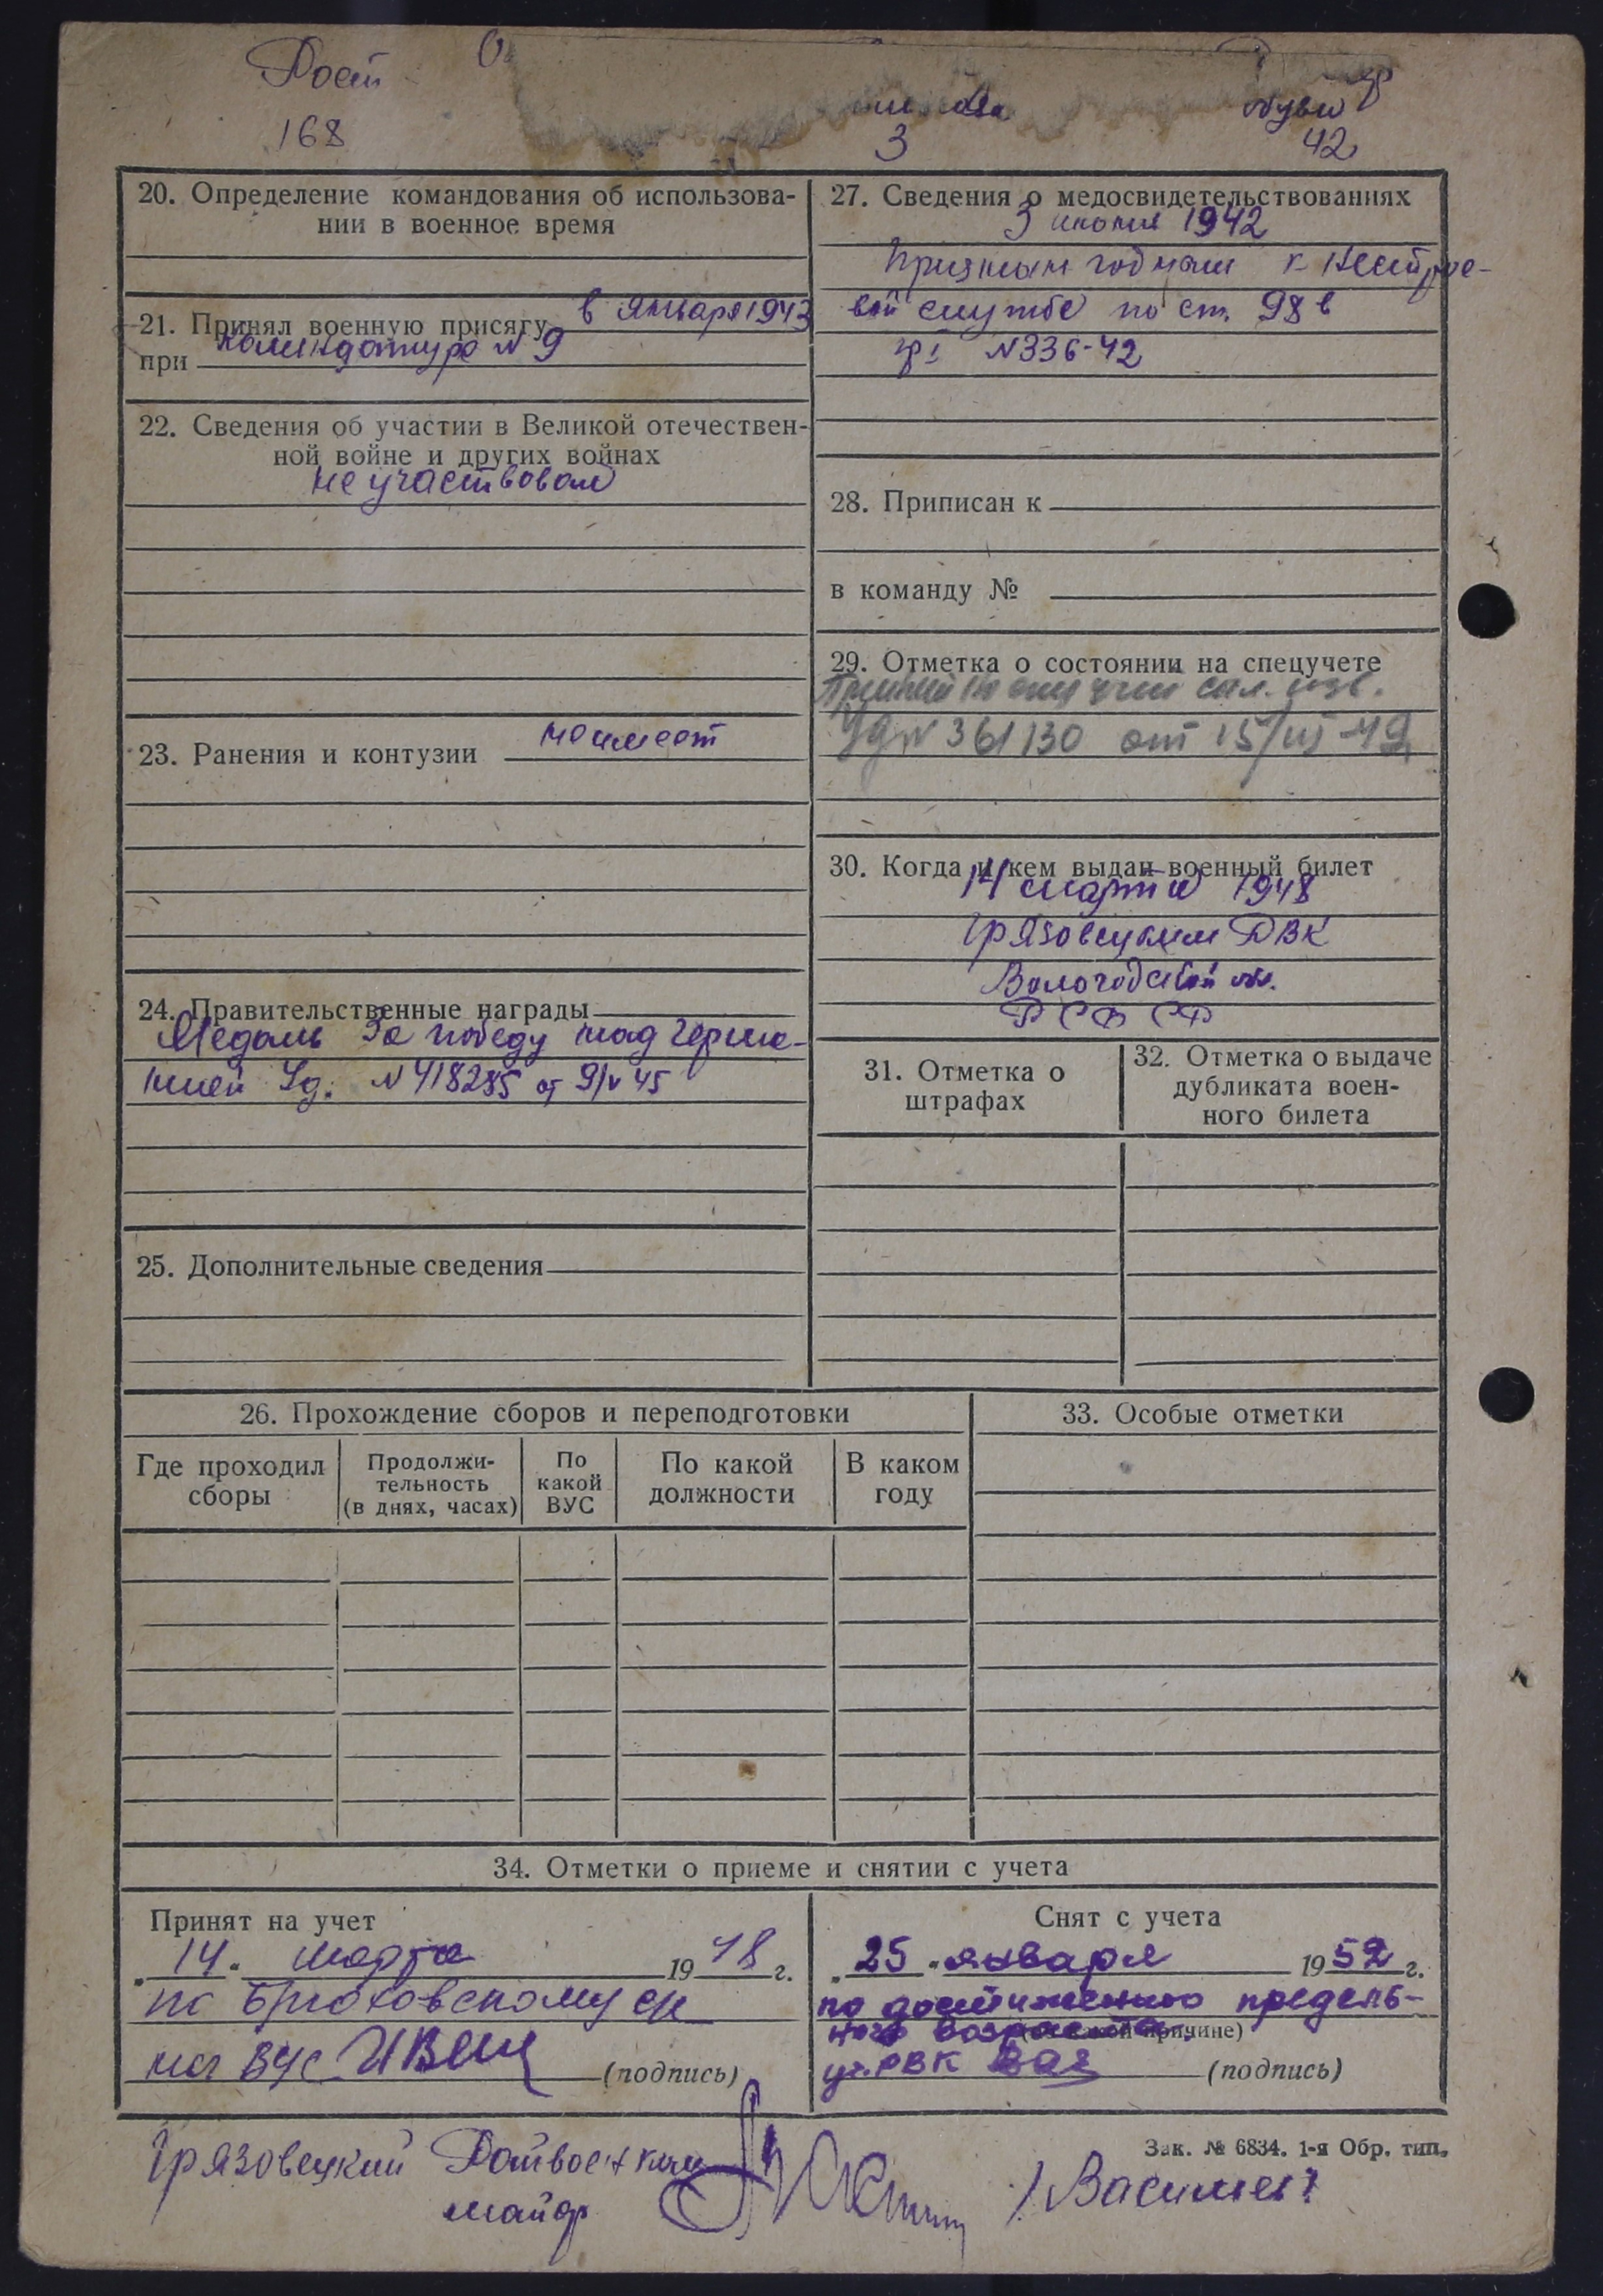 Рост
168
3
обуви
42
20. Определение командования об использова-
нии в военное время
21. Принял военную присягу в января 1943
при комендатуре N 9
22. Сведения об участии в Великой отечествен-
ной войне и других войнах
не участвовал
23. Ранения и контузии не имеет
24. Правительственные награды
Медаль За победу над Герма-
нией Уд. N 418285 от 9/V 45
25. Дополнительные сведения
27. Сведения о медосвидетельствованиях
3 1942
Признан годным к нестрое-
вой службе по ст. 98 в
N 336-42
28. Приписан к
в команду №
29. Отметка о состоянии на спецучете
N 361130 от 15/VI-49
30. Когда и кем выдан военный билет
14 марта 1948
Грязовецким РВК
Вологодской обл.
РСФСР
31. Отметка о
штрафах
32. Отметка о выдаче
дубликата воен-
ного билета
26. Прохождение сборов и переподготовки
Где проходил
сборы
Продолжи-
тельность
(в днях, часах)
По
какой
ВУС
По какой
должности
В каком
году
33. Особые отметки
34. Отметки о приеме и снятии с учета
Принят на учет
„14“ марта 1948 г.
по Брюховскому с/с
нач ВУС (подпись)
Снят с учета
„25“ января 1952 г.
по достижению предель-
ного возраста (по какой причине)
РВК (подпись)
Зак. № 6834. 1-я Обр. тип.
Грязовецкий Райвоенком
майор /Васильев/